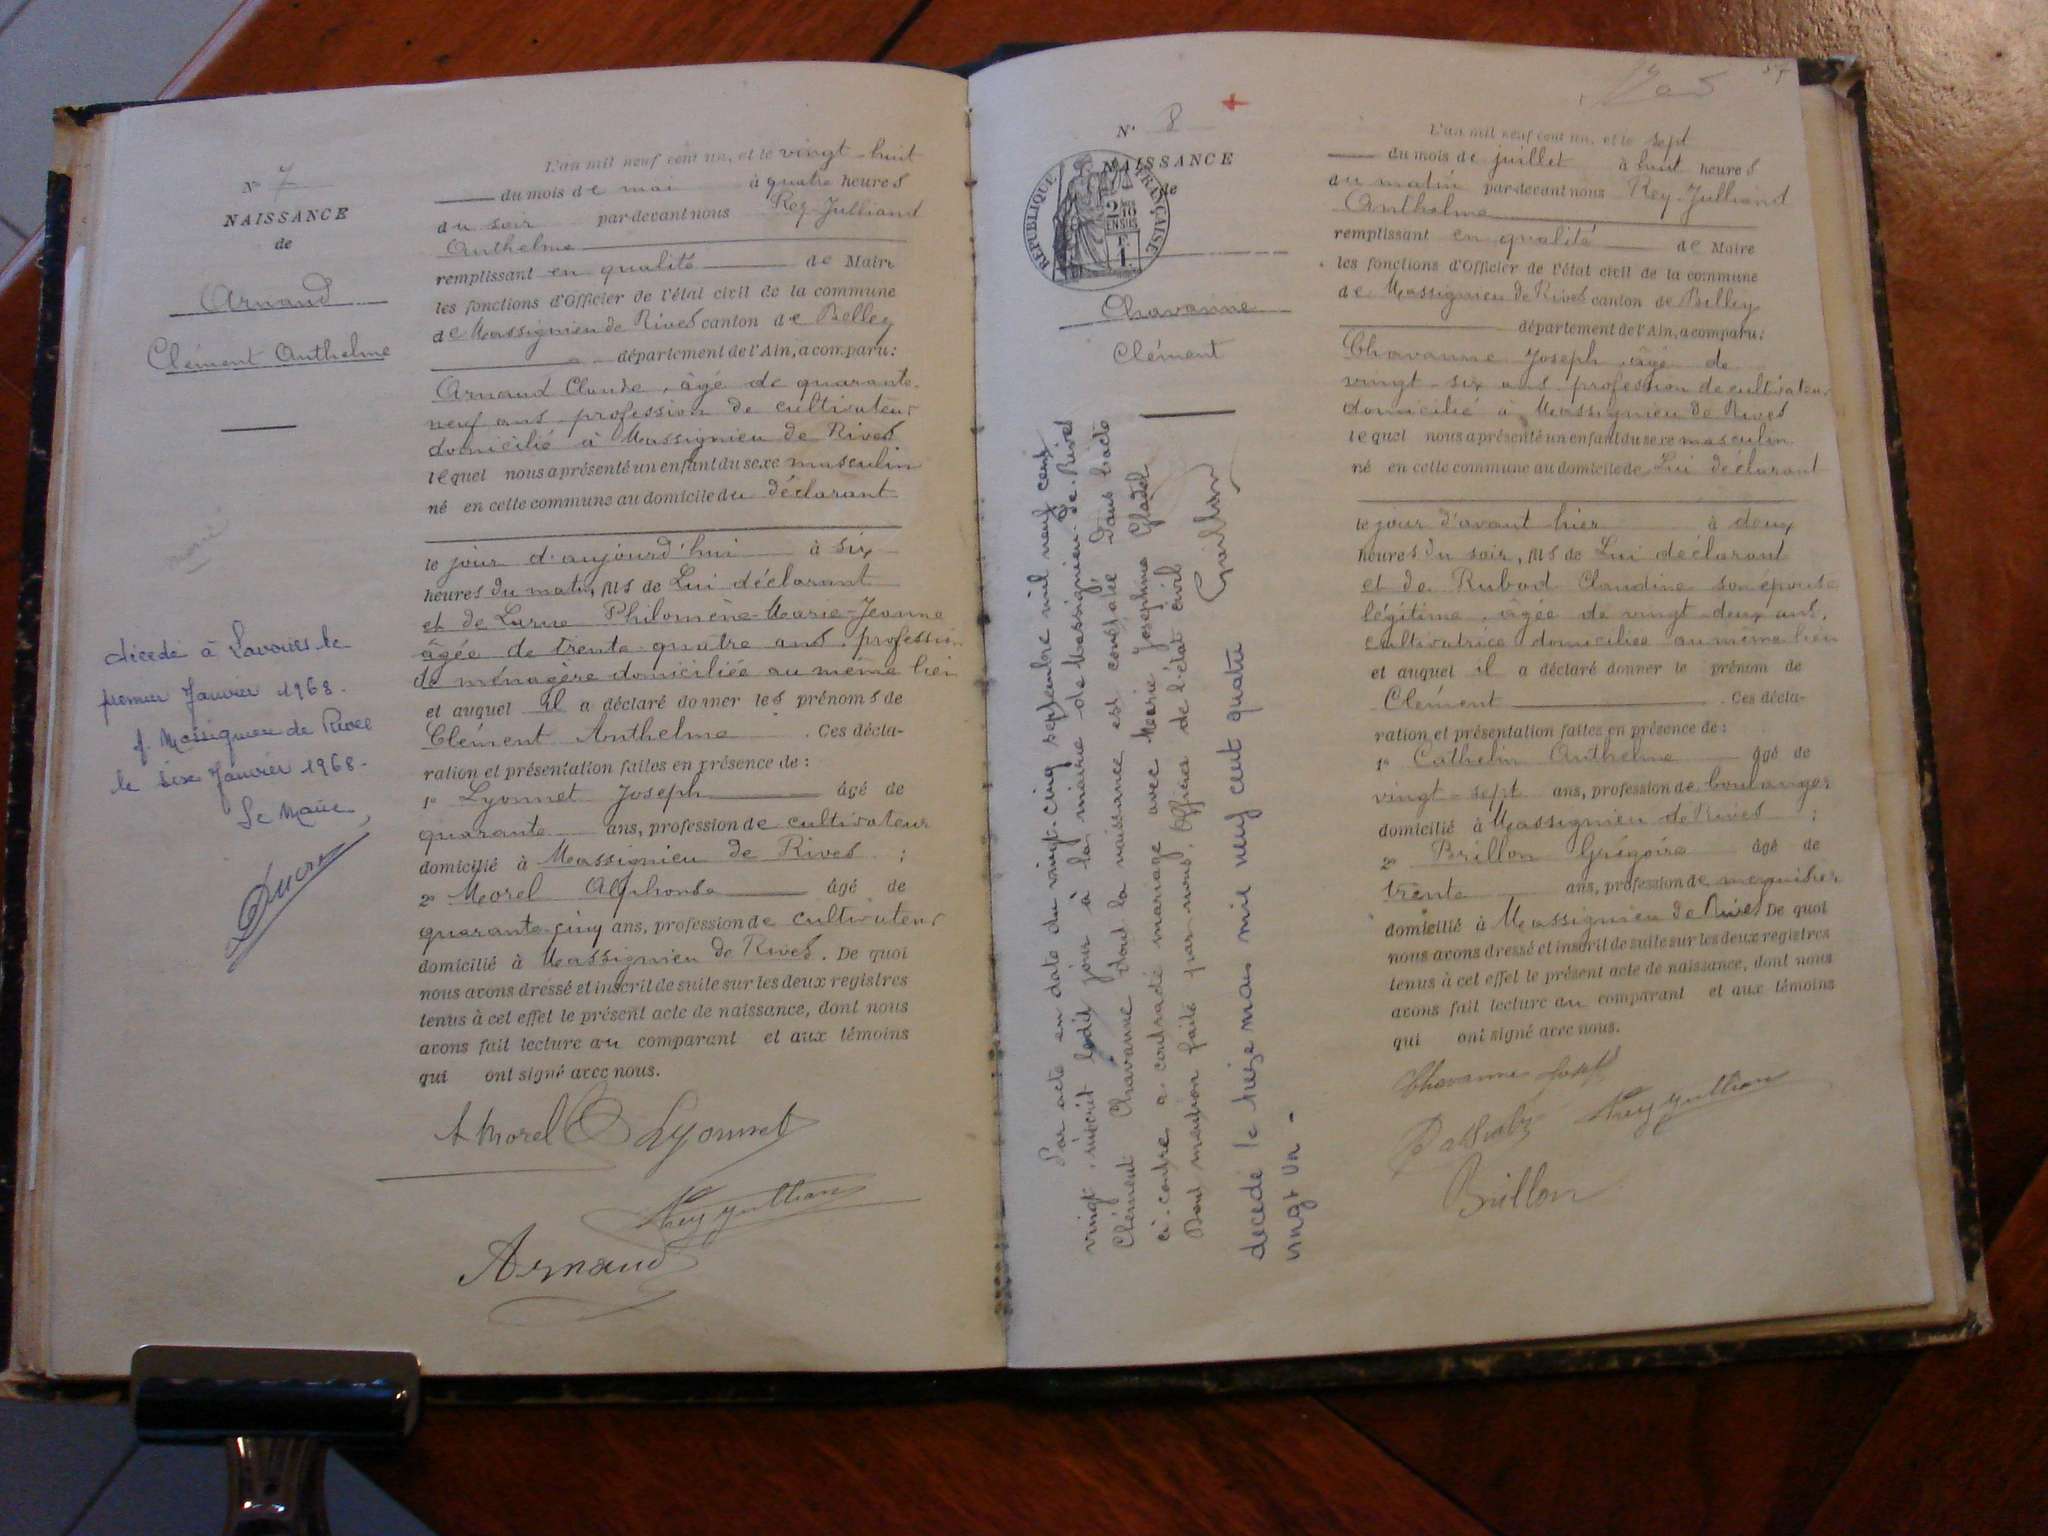 N° 7
NAISSANCE
de
Arnaud
Clément Anthelme
décédé à Lavours le
premier Janvier 1968.
f. Massignieu de Rives
le six Janvier 1968.
Le Maire,
L'an mil neuf cent un, et le vingt-huit
du mois de mai à quatre heures
du soir par-devant nous Rey-Julliand
Anthelme
remplissant en qualité de Maire
les fonctions d'Officier de l'état civil de la commune
de Massignieu de Rives canton de Belley
département de l'Ain, a comparu:
Arnaud Claude, âgé de quarante-
neuf ans, profession de cultivateur
domicilié à Massignieu de Rives
lequel nous a présenté un enfant du sexe masculin
né en cette commune au domicile du déclarant
le jour d'aujourd'hui à six
heures du matin, fils de Lui déclarant
et de Philomène-Marie-Jeanne
âgée de trente-quatre ans, profession
de ménagère domiciliée au même lieu
et auquel il a déclaré donner les prénoms de
Clément Anthelme. Ces décla-
ration et présentation faites en présence de:
1° Lyonnet Joseph âgé de
quarante ans, profession de cultivateur
domicilié à Massignieu de Rives;
2° Morel Alphonse âgé de
quarante-cinq ans, profession de cultivateur
domicilié à Massignieu de Rives. De quoi
nous avons dressé et inscrit de suite sur les deux registres
tenus à cet effet le présent acte de naissance, dont nous
avons fait lecture au comparant et aux témoins
qui ont signé avec nous.
A Morel Lyonnet
Rey Julliand
Arnaud
N° 8
NAISSANCE
de
RÉPUBLIQUE FRANÇAISE
2/10
EN SUS
1 F.
Chavanne
Clément
Par acte en date du vingt-cinq septembre mil neuf cent
vingt, inscrit ledit jour à la mairie de Massignieu-de-Rives
Clément Chavanne dont la naissance est constatée dans l'acte
ci-contre, a contracté mariage avec Marie Josephine Gladel
Dont mention faite par nous, Officier de l'état civil
décédé le treize mars mil neuf cent quatre
vingt un -
L'an mil neuf cent un, et le sept
du mois de juillet à huit heures
du matin par-devant nous Rey-Julliand
Anthelme
remplissant en qualité de Maire
les fonctions d'Officier de l'état civil de la commune
de Massignieu de Rives canton de Belley
département de l'Ain, a comparu:
Chavanne Joseph âgé de
vingt-six ans profession de cultivateur
domicilié à Massignieu de Rives
lequel nous a présenté un enfant du sexe masculin
né en cette commune au domicile de Lui déclarant
le jour d'avant-hier à deux
heures du soir, fils de Lui déclarant
et de Rubod Claudine son épouse
légitime, âgée de vingt-deux ans,
cultivatrice domiciliée au même lieu
et auquel il a déclaré donner le prénom de
Clément. Ces décla-
ration et présentation faites en présence de:
1° Cathelin Anthelme âgé de
vingt-sept ans, profession de boulanger
domicilié à Massignieu de Rives;
2° Brillon Grégoire âgé de
trente ans, profession de menuisier
domicilié à Massignieu de Rives De quoi
nous avons dressé et inscrit de suite sur les deux registres
tenus à cet effet le présent acte de naissance, dont nous
avons fait lecture au comparant et aux témoins
qui ont signé avec nous.
Chavanne Joseph
Cathelin Rey Julliand
Brillon